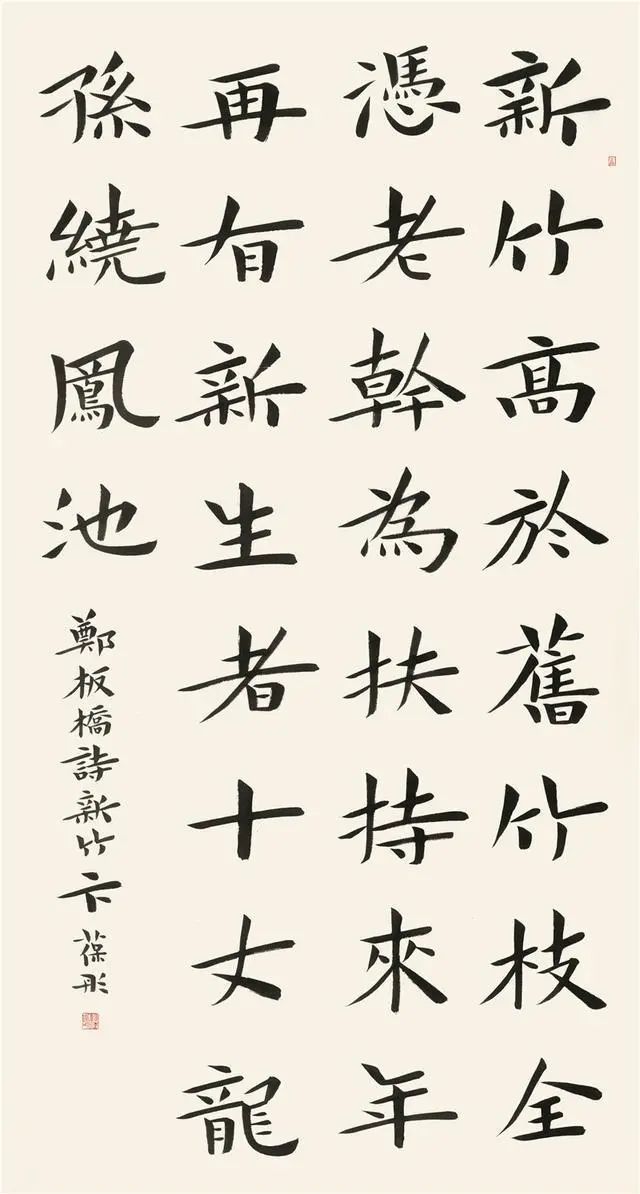 新竹高於舊竹枝全
憑老幹為扶持來年
再有新生者十丈龍
孫繞鳳池
鄭板橋詩新竹卞葆彤